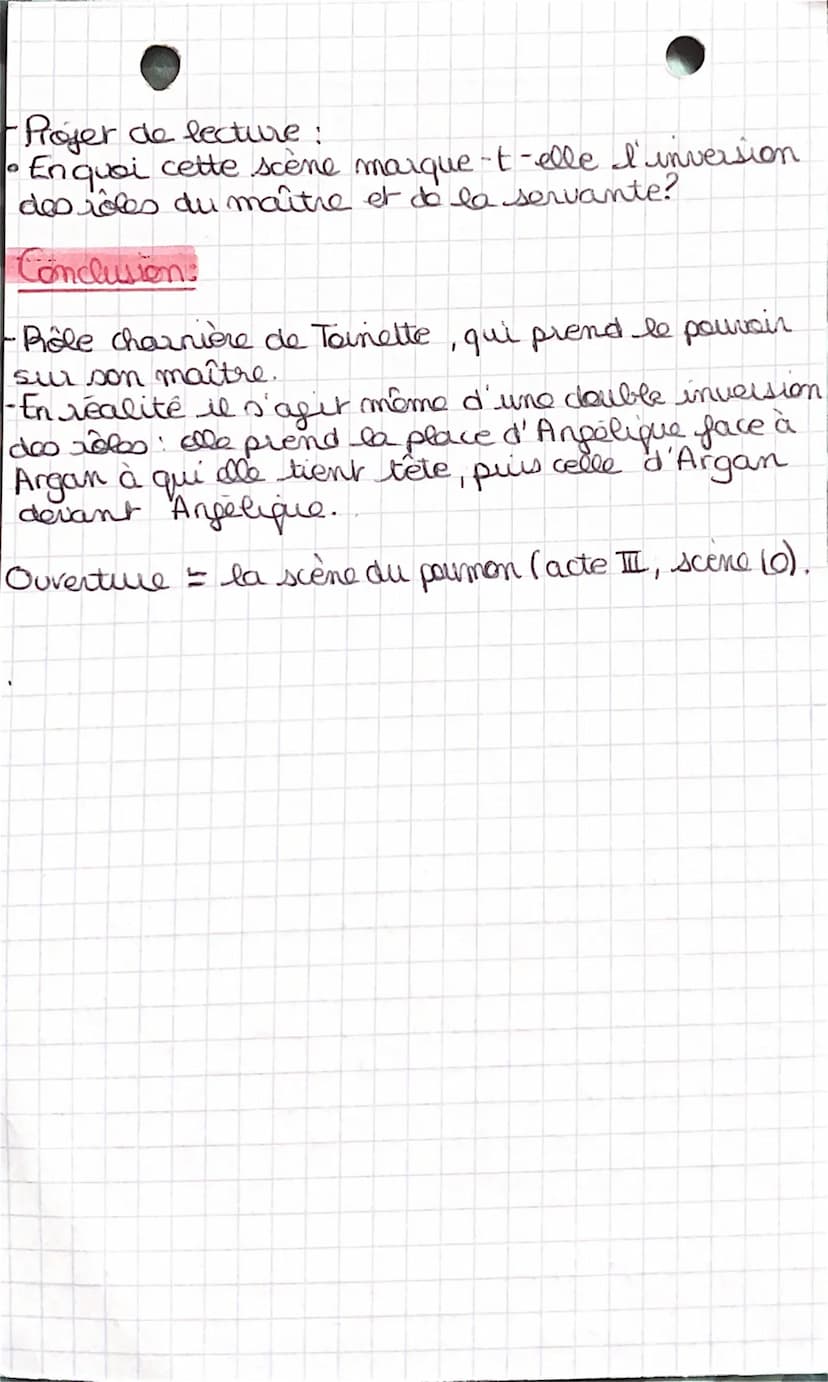 - Projet de lecture :
• En quoi cette scène marque-t-elle l'inversion
des rôles du maître et de la servante?
Conclusion:
- Rôle charnière de Toinette, qui prend le pouvoir
sur son maître.
- En réalité il s'agit même d'une double inversion
des rôles : elle prend la place d'Angélique face à
Argan à qui elle tient tête, puis celle d'Argan
devant Angélique.
Ouverture = la scène du poumon (acte III, scène 10).